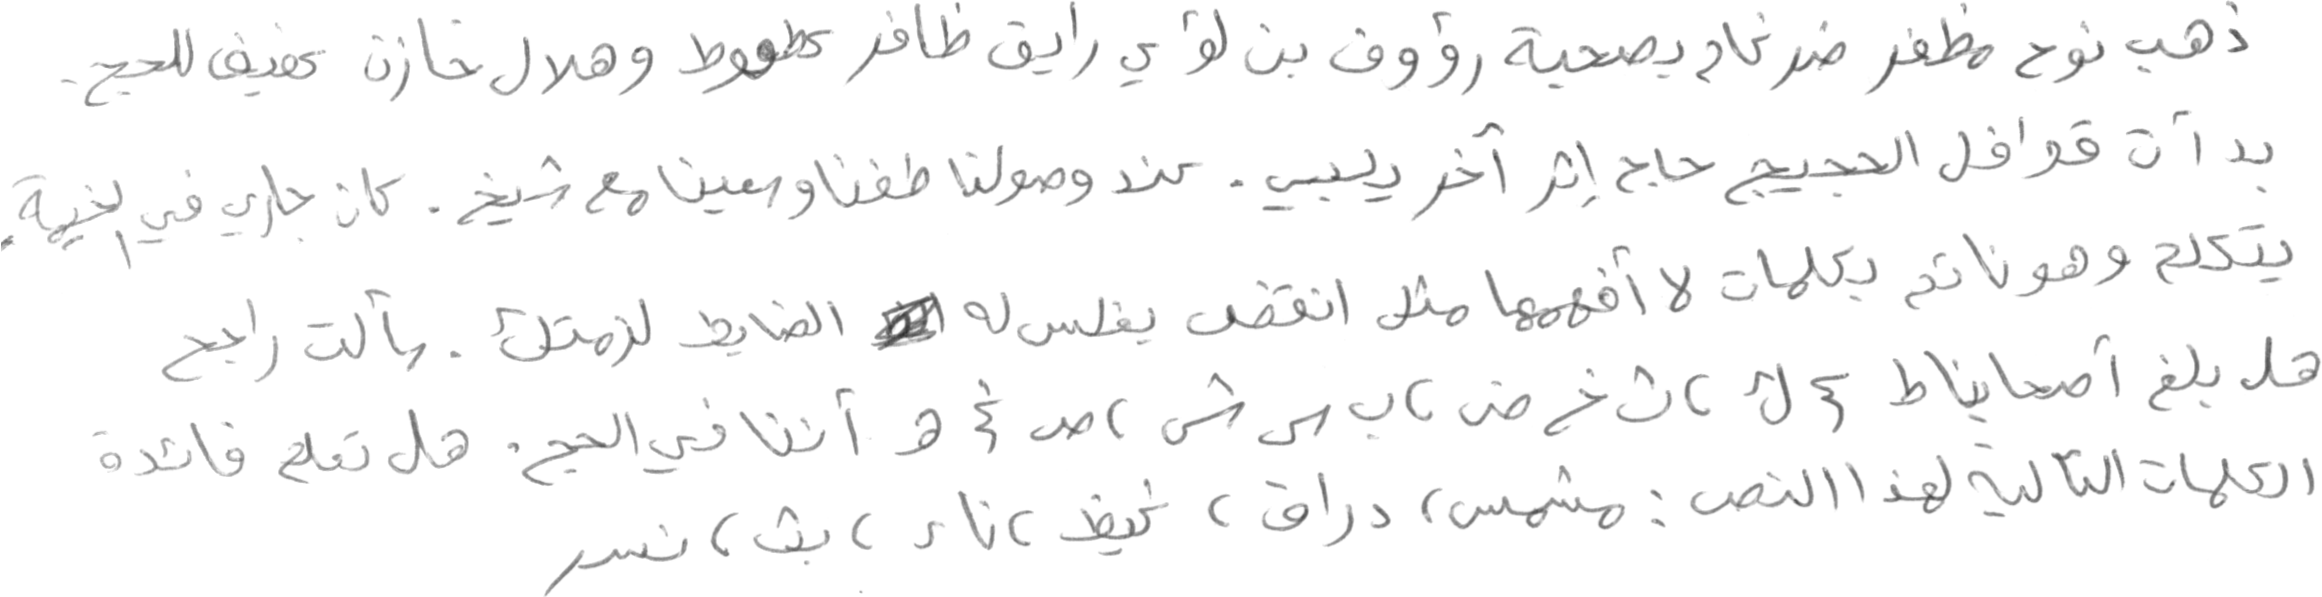 ذهب نوح مظفر ضرغام بصحبة رؤوف بن لؤي رايق ظافر عطووط وهلال خازن عفيف للحج.
بدأت قوافل الحجيج حاج إثر آخر يلبي. عند وصولنا طفنا وسعينا مع شيخ. كان جاري في الخيمة
يتكلم وهو نائم بكلمات لا أفهمها مثل انقض يغلس له الضابط لزمتك. سألت راجح
هل بلغ أصحابنا ط ع ك، ث خ ض، ب س ش، ص غ ه أننا في الحج. هل تعلم فائدة
الكلمات التالية لهذا النص: مشمس، دراق، غيظ، ناء، بث، نسر